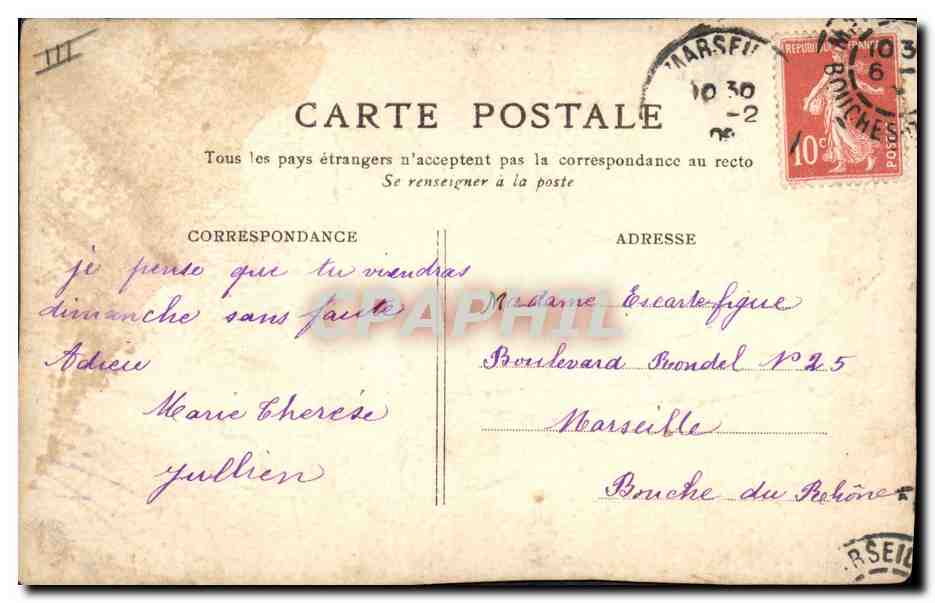 III
MARSEIL
10 30
-2
REPUBLIQUE FRANCAISE
10c
POSTES
10 3
6
BOUCHES
CARTE POSTALE
Tous les pays étrangers n'acceptent pas la correspondance au recto
Se renseigner à la poste
CORRESPONDANCE
je pense que tu viendras
dimanche sans faute
Adieu
Marie Therése
Jullien
ADRESSE
Madame Escartefigue
Boulevard Rondel N° 25
Marseille
Bouche du Rhône
CPAPHIL
RSEIL